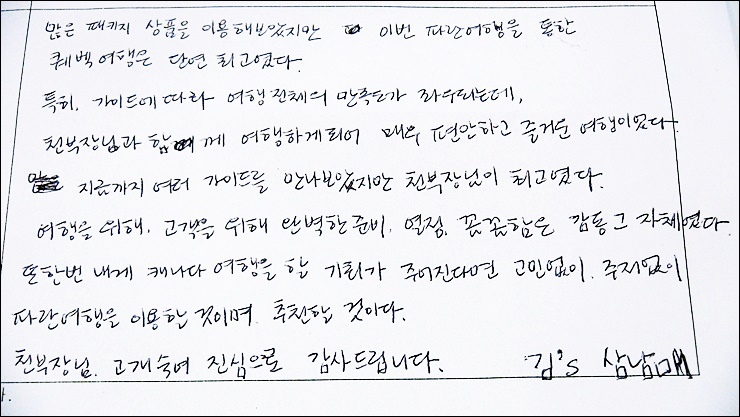 많은 패키지 상품을 이용해보았지만 이번 파란여행을 통한
퀘벡여행은 단연 최고였다.
특히, 가이드에 따라 여행전체의 만족도가 좌우되는데,
천부장님과 함께 여행하게되어 매우 편안하고 즐거운 여행이었다.
지금까지 여러 가이드를 만나보았지만 천부장님이 최고였다.
여행을 위해, 고객을 위해 완벽한 준비, 열정, 꼼꼼함은 감동 그 자체였다.
또한번 내게 캐나다 여행을 할 기회가 주어진다면 고민없이, 주저없이
파란여행을 이용할 것이며, 추천할 것이다.
천부장님, 고개숙여 진심으로 감사드립니다. 김's 삼남매